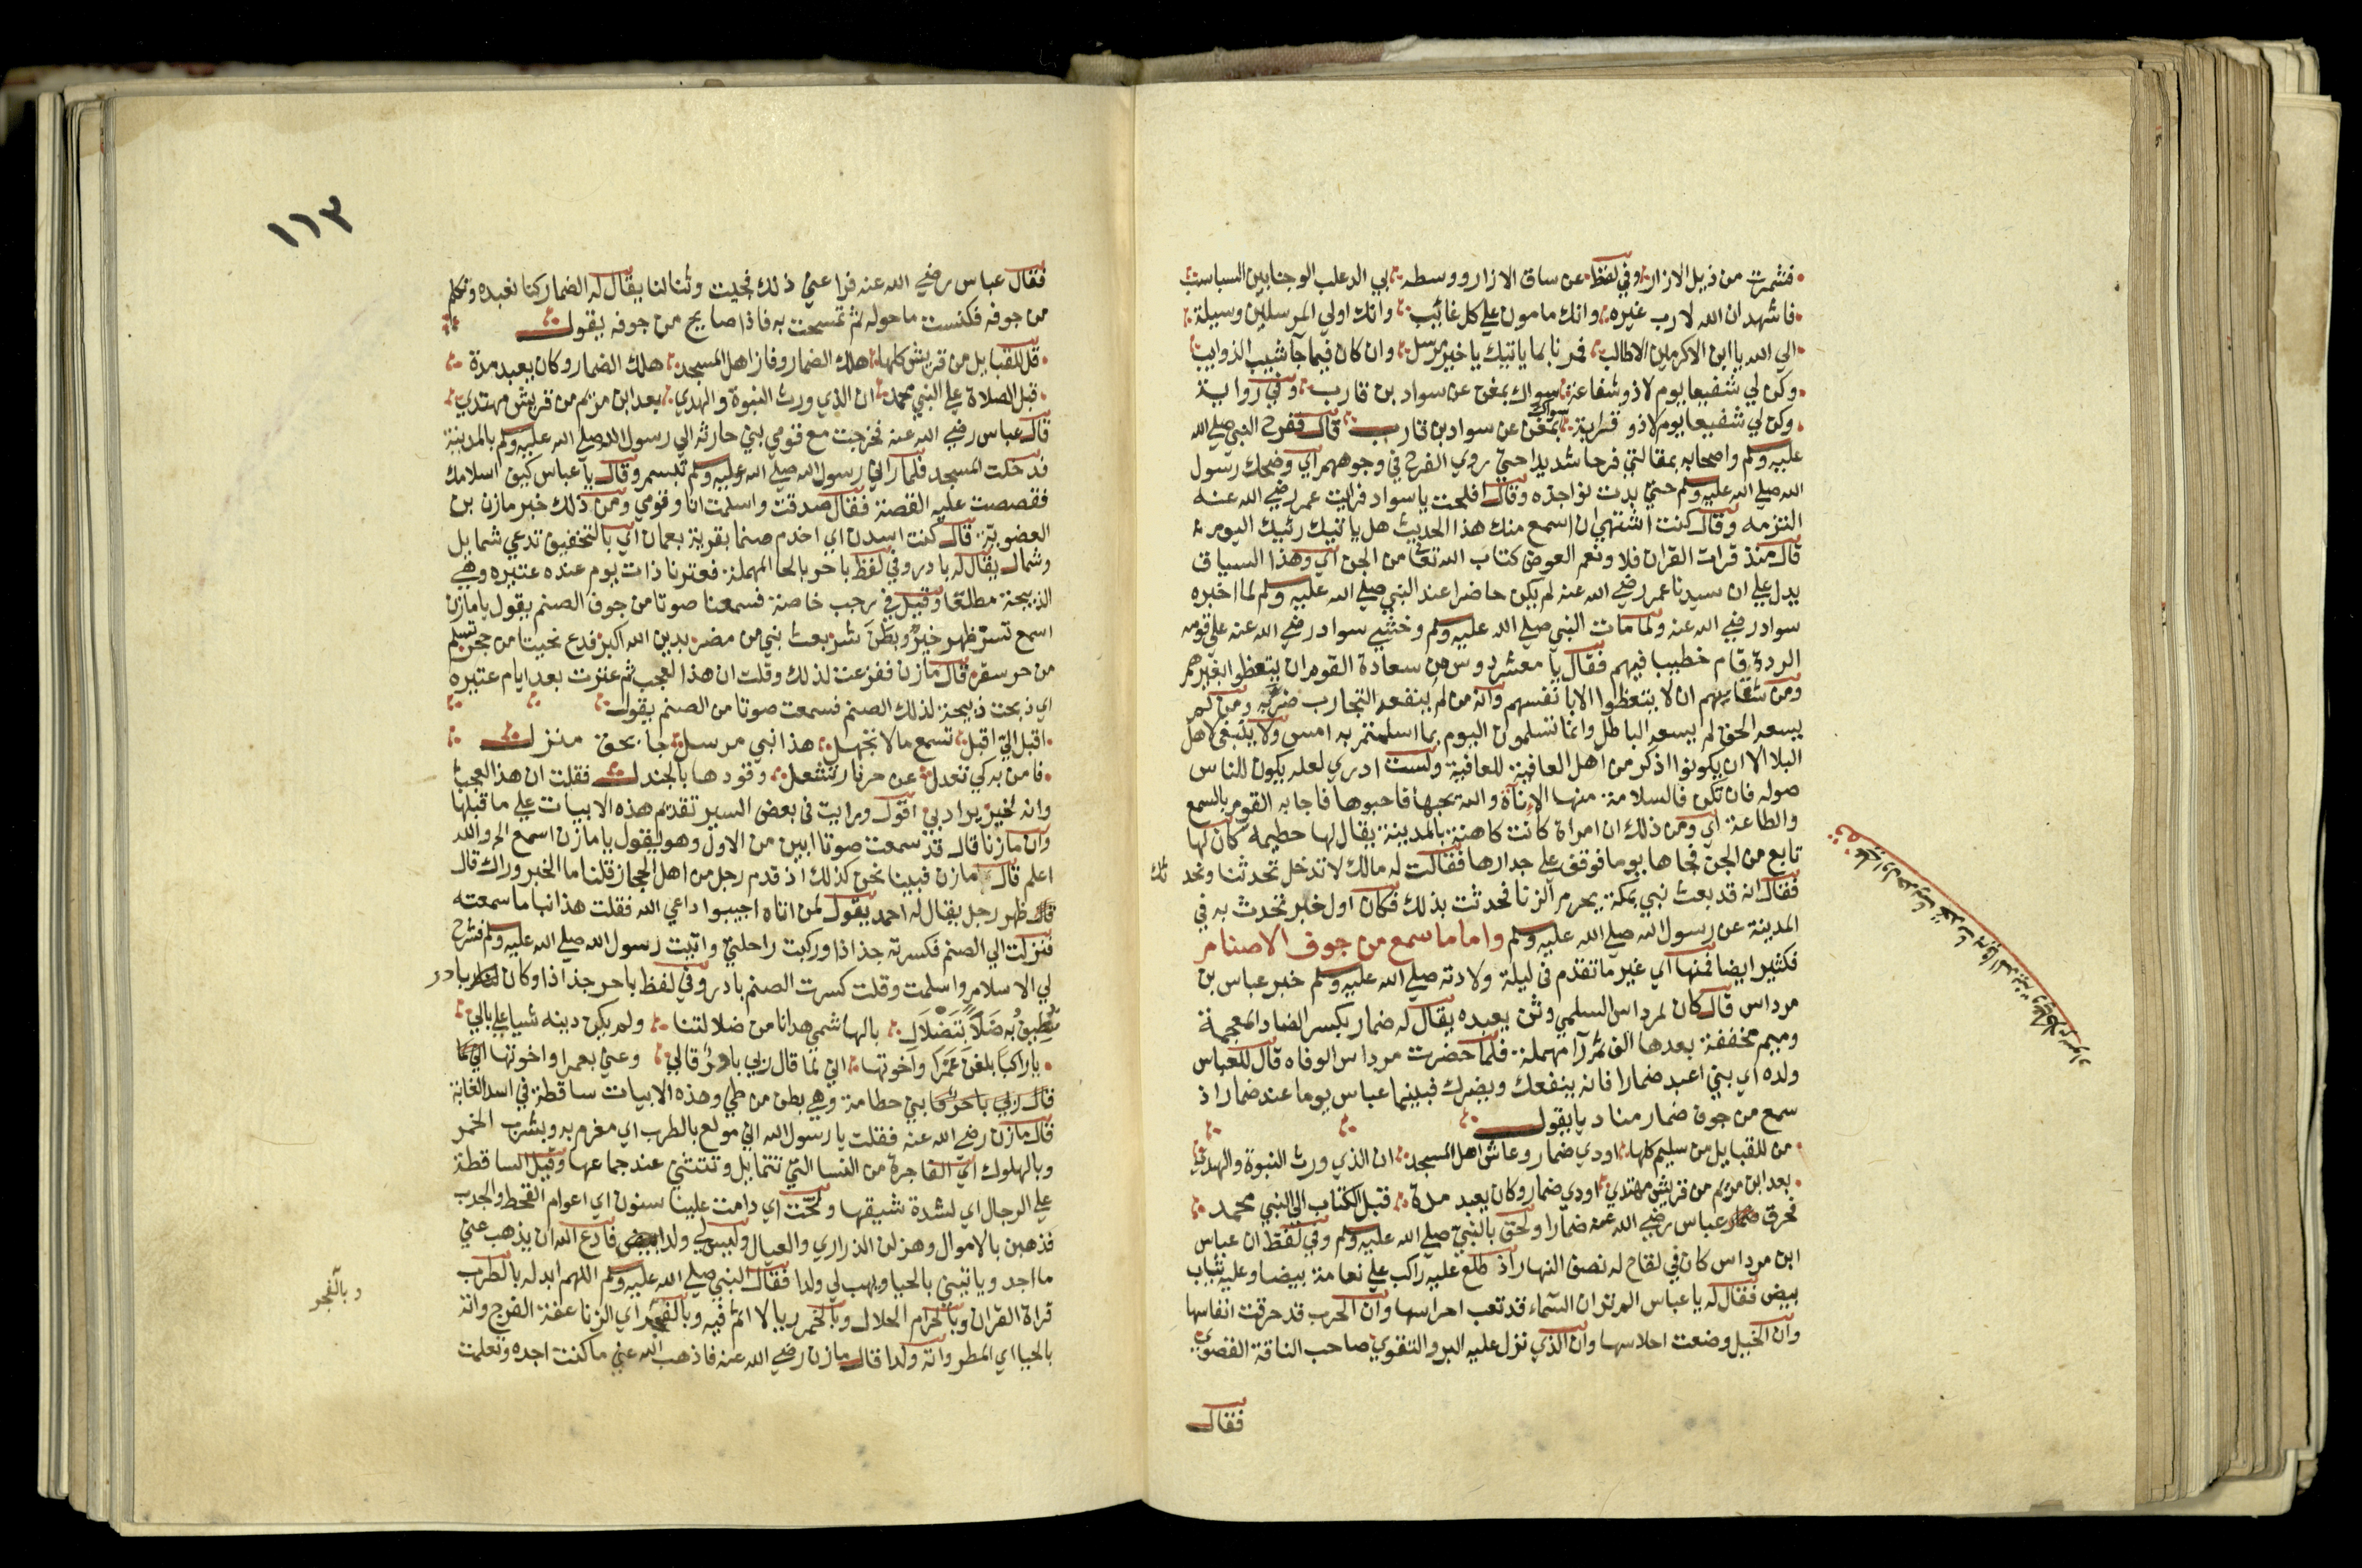 فشمرت من ذيل الازار وفي لفظ عن ساق الازار ووسطه بي الدعلب الوجنا بين السباسب
فاشهد ان الله لا رب غيره وانك مامون علي كل غائب وانك اولي المرسلين وسيلة
الي الله يا ابن الاكرمين الاطالب فمرنا بما ياتيك يا خير مرسل وان كان فيما جا شيب الذوايب
وكن لي شفيعا يوم لا ذو شفاعة سواك بمغن عن سواد بن قارب وفي رواية
وكن لي شفيعا يوم لا ذو قرابة سواك بمغن عن سواد بن قارب قال ففرح النبي صلي الله
عليه وسلم واصحابه بمقالتي فرحا شديدا حتي روي الفرح في وجوههم اي وضحك رسول
الله صلي الله عليه وسلم حتي بدت نواجذه وقال افلحت يا سواد فرايت عمر رضي الله عنه
التزمه وقال كنت اشتهي ان اسمع منك هذا الحديث هل ياتيك رئيك اليوم
قال منذ قرات القران فلا ونعم العوض كتاب الله تعا من الجن اي وهذا السياق
يدل علي ان سيدنا عمر رضي الله عنه لم يكن حاضرا عند النبي صلي الله عليه وسلم لما اخبره
سواد رضي الله عنه ولما مات النبي صلي الله عليه وسلم وخشي سواد رضي الله عنه علي قومه
الردة قام خطيبا فيهم فقال يا معشر دوس من سعادة القوم ان يتعظوا بغيرهم
ومن شقايهم ان لا يتعظوا الا بانفسهم وانه من لم ينفعه التجارب ضرته ومن لم
يسعه الحق لم يسعه الباطل وانما تسلمون اليوم بما اسلمتم به امس ولا ينبغي لاهل
البلا الا ان يكونوا اذكر من اهل العافية للعافية ولست ادري لعله يكون للناس
صوله فان تكن فالسلامة منها الاناة والله يحبها فاحبوها فاجابه القوم بالسمع
والطاعة اي ومن ذلك ان امراة كانت كاهنة بالمدينة يقال لها حطيمه كان لها
تابع من الجن فجاها يوما فوقف علي جدارها فقالت له مالك لا تدخل تحدثنا ونحدثك
فقال انه قد بعث نبي بمكة يحرم الزنا فحدثت بذلك فكان اول خبر تحدث به في
المدينة عن رسول الله صلي الله عليه وسلم واما ما سمع من جوف الاصنام
فكثير ايضا فمنها اي غير ما تقدم في ليلة ولادته صلي الله عليه وسلم خبر عباس بن
مرداس قال كان لمرداس السلمي وثن يعبده يقال له ضمار بكسر الضاد المعجمة
وميم مخففة بعدها الف ثم را مهملة فلما حضرت مرداس الوفاه قال للعباس
ولده اي بني اعبد ضمارا فانه ينفعك ويضرك فبينما عباس يوما عند ضمار اذ
سمع من جوف ضمار مناديا يقول
من للقبايل من سليم كلها اودي ضمار وعاش اهل المسجد ان الذي ورث النبوة والهدي
بعد ابن مريم من قريش مهتدي اودي ضمار وكان يعبد مدة قبل الكتاب الي النبي محمد
فحرق عباس رضي الله عنه ضمارا ولحق بالنبي صلي الله عليه وسلم وفي لفظ ان عباس
ابن مرداس كان في لقاح له نصف النهار اذ طلع عليه راكب علي نعامة بيضا وعليه ثياب
بيض فقال له يا عباس الم تر ان السماء قد تعب احراسها وان الحرب قد حرقت انفاسها
وان الخيل وضعت احلاسها وان الذي نزل عليه البر والتقوي صاحب الناقة القصوي
فقال
١١٣
فقال عباس رضي الله عنه فراعني ذلك فجيت وثنا لنا يقال له الضمار كنا نعبده ونكلم
من جوفه فكنست ما حوله ثم تمسحت به فاذا صايح من جوفه يقول
قل للقبايل من قريش كلها هلك الضمار وفاز اهل المسجد هلك الضمار وكان يعبد مدة
قبل الصلاة علي النبي محمد ان الذي ورث النبوة والهدي بعد ابن مريم من قريش مهتدي
قال عباس رضي الله عنه فخرجت مع قومي بني حارثه الي رسول الله صلي الله عليه وسلم بالمدينة
فدخلت المسجد فلما راني رسول الله صلي الله عليه وسلم تبسم وقال يا عباس كيف اسلامك
فقصصت عليه القصة فقال صدقت واسلمت انا وقومي ومن ذلك خبر مازن بن
العضوية قال كنت اسدن اي اخدم صنما بقرية بعمان اي بالتخفيف تدعي شمايل
وشمال يقال له بادر وفي لفظ باحر بالحا المهملة فعترنا ذات يوم عنده عتيره وهي
الذبيحة مطلقا وقيل في رجب خاصة فسمعنا صوتا من جوف الصنم يقول يا مازن
اسمع تسر ظهر خير وبطن شر بعث نبي من مضر بدين الله اكبر فدع نحيتا من حجر تسلم
من حر سقر قال مازن ففزعت لذلك وقلت ان هذا لعجب ثم عترت بعد ايام عتيره
اي ذبحت ذبيحة لذلك الصنم فسمعت صوتا من الصنم يقول
اقبل الي اقبل تسمع ما لا تجهل هذا نبي مرسل جا بحق منزل
فامن به كي تعدل عن حر نار تشعل وقودها بالجندل فقلت ان هذا لعجبا
وانه لخير يراد بي اقول ورايت في بعض السير تقديم هذه الابيات علي ما قبلها
وان مازنا قال قد سمعت صوتا ابين من الاول وهو يقول يا مازن اسمع الم والله
اعلم قال مازن فبينا نحن كذلك اذ قدم رجل من اهل الحجاز قلنا ما الخبر وراك قال
ظهر رجل يقال له احمد يقول لمن اتاه اجيبوا داعي الله فقلت هذا نبا ما سمعته
فنزلت الي الصنم فكسرته جذاذا وركبت راحلتي واتيت رسول الله صلي الله عليه وسلم فشرح
لي الاسلام واسلمت وقلت كسرت الصنم بادر وفي لفظ باحر جذاذا وكان لنا ربا
نطيف به ضلا بتضلال بالهاشمي هدانا من ضلالتنا ولم يكن دينه شيا علي بالي
يا راكبا بلغن عمرا واخوتها اني لما قال ربي باحر قالي وعني بعمرا واخوتها
بني حطامة وهي بطن من طي وهذه الابيات ساقطة في اسد الغابة
قال مازن رضي الله عنه فقلت يا رسول الله اني مولع بالطرب اي مغرم به وبشرب الخمر
وبالهلوك اي الفاجرة من النسا التي تتمايل وتتثني عند جماعها وقيل الساقطة
علي الرجال اي لشدة شبقها والحت اي دامت علينا سنون اي اعوام القحط والجدب
فذهبن بالاموال وهزلن الذراري والعيال وليس لي ولد فادع الله ان يذهب عني
ما اجد وياتيني بالحيا ويهب لي ولدا فقال النبي صلي الله عليه وسلم اللهم ابدله بالطرب
قراة القران وبالحرام الحلال وبالخمر ريا لا اثم فيه وبالفجر اي الزنا عفة الفرج واته
بالحيا اي المطر واته ولدا قال مازن رضي الله عنه فاذهب الله عني ما كنت اجده وتعلمت
وبالفجر